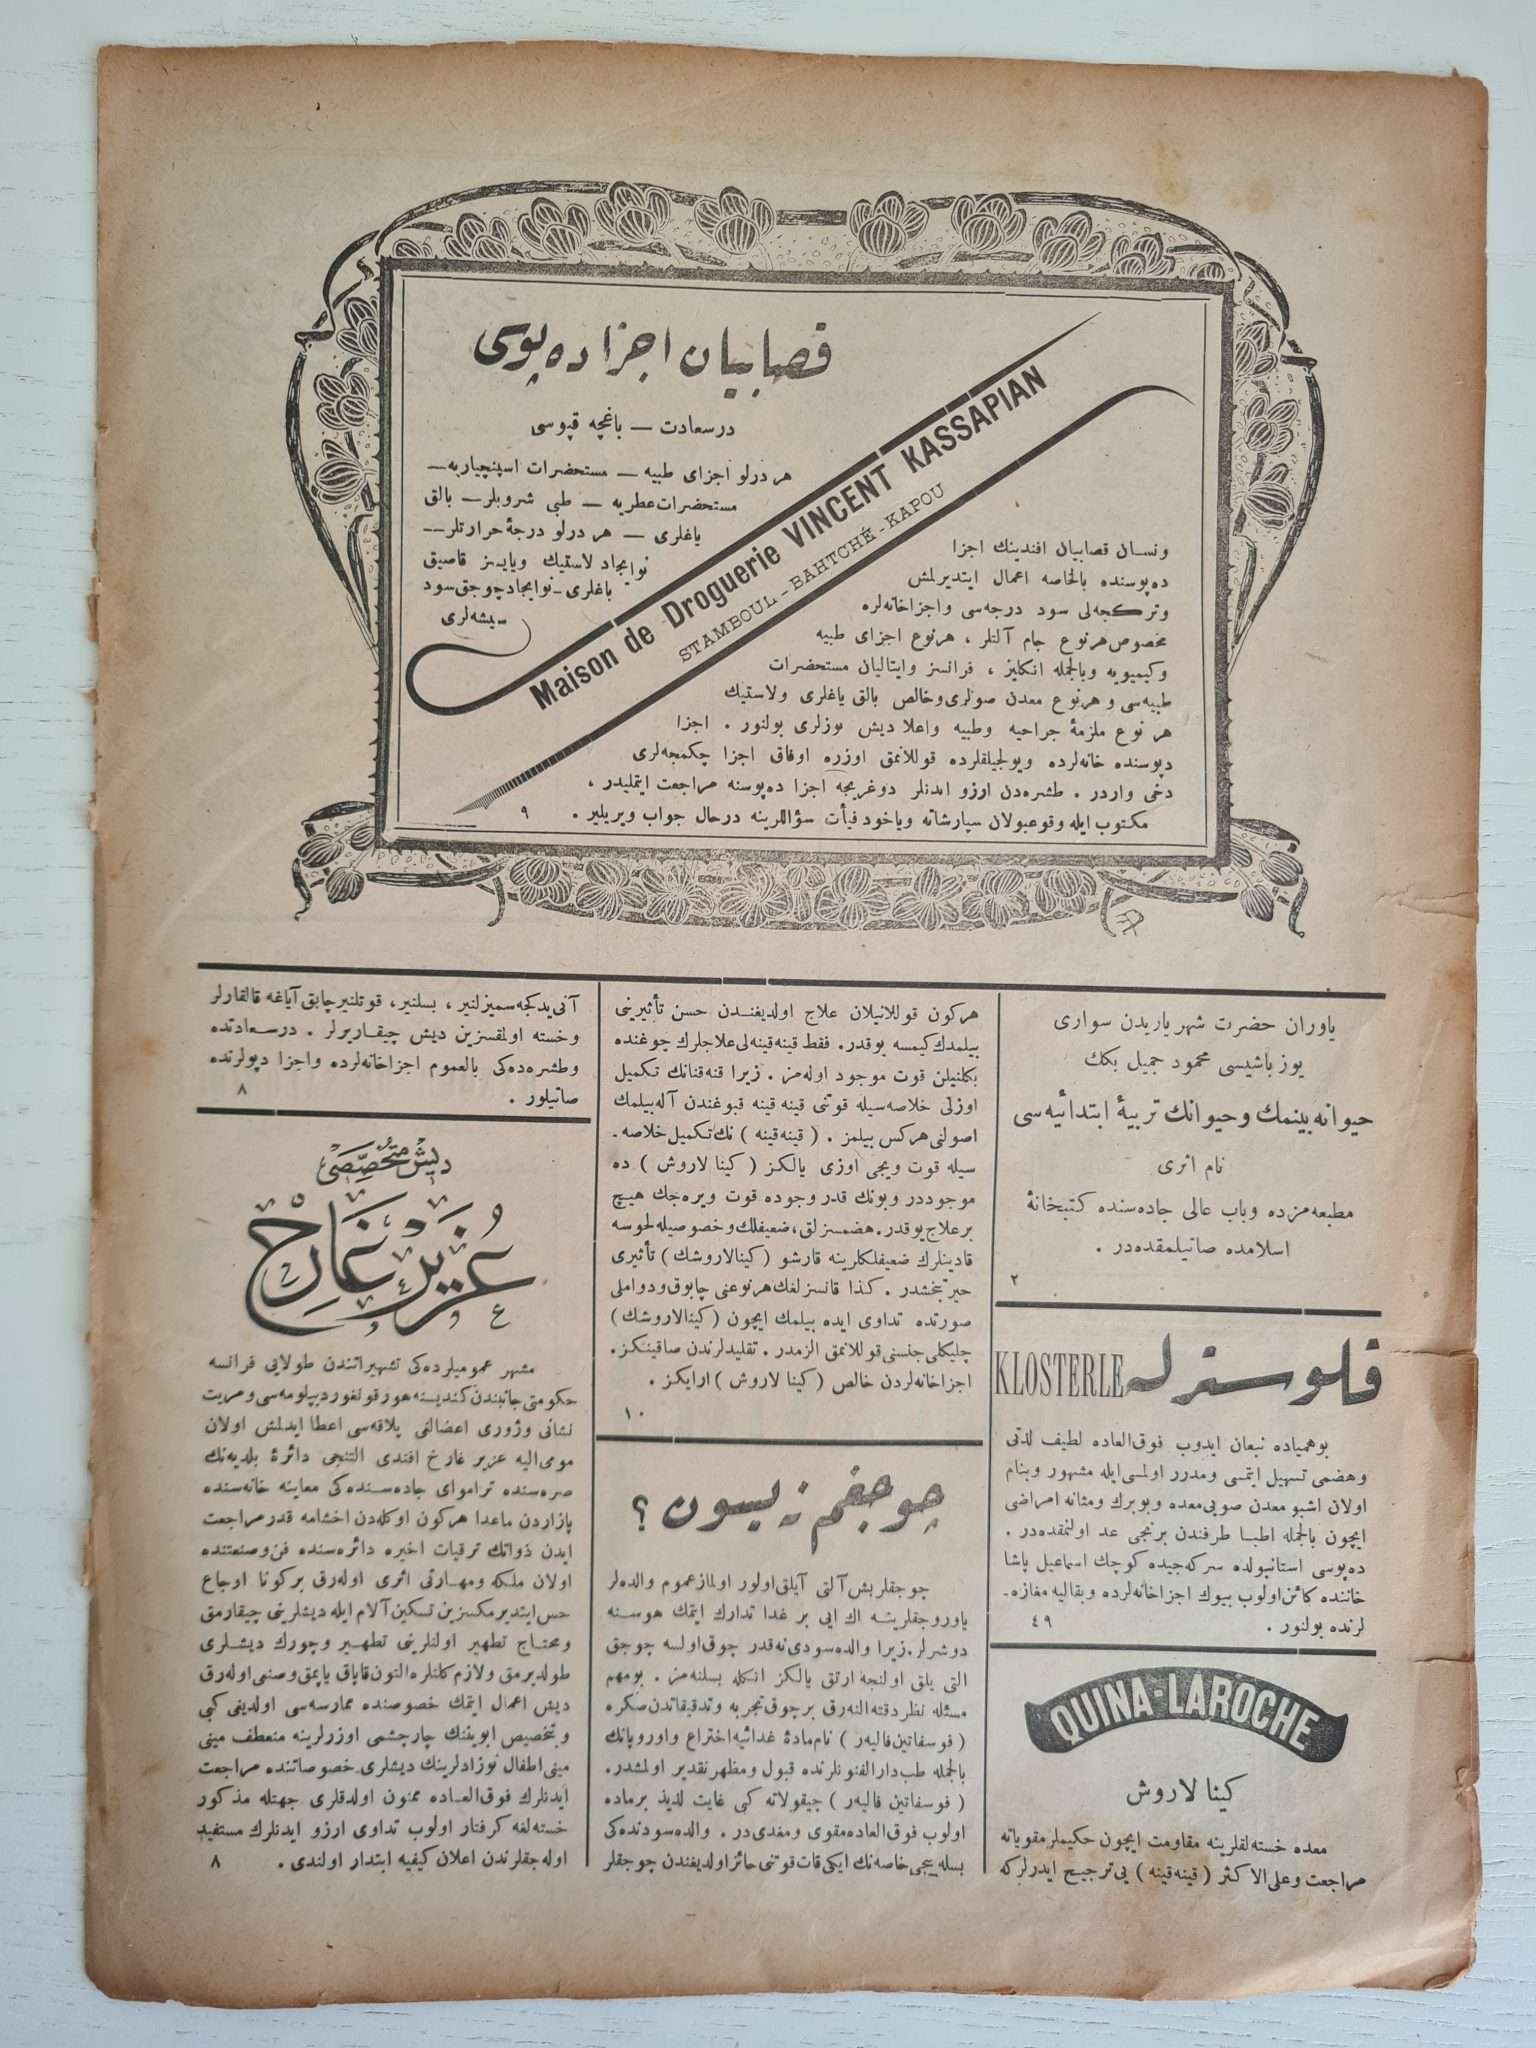 قصابيان اجزا ده پوسی
در سعادت — باغچه قپوسی
هر درلو اجزای طبيه — مستحضرات اسپنچياريه —
مستحضرات عطريه — طبی شروبلر — بالق
ياغلری — هر درلو درجهٔ حرارتلر —
نوايجاد لاستيك وياپسز قاصيق
باغلری - نوايجاد چوجق سود
شيشه‌لری
Maison de Droguerie VINCENT KASSAPIAN
STAMBOUL - BAHTCHÉ - KAPOU
ونسان قصابيان افندينك اجزا
ده پوسنده بالخاصه اعمال ايتديرلمش
وتركجه‌لی سود درجه‌سی واجزاخانه‌لره
مخصوص هر نوع جام آلتلر ، هر نوع اجزای طبيه
وكيميويه وبالجمله انكليز ، فرانسز وايتاليان مستحضرات
طبيه‌سی و هر نوع معدن صولری وخالص بالق ياغلری ولاستيك
هر نوع ملزمهٔ جراحيه وطبيه واعلا ديش توزلری بولنور . اجزا
دپوسنده خانه‌لرده ويولجيلقلرده قوللانمق اوزره اوفاق اجزا چكمجه‌لری
دخی واردر . طشره‌دن ارزو ايدنلر دوغريجه اجزا ده پوسنه مراجعت ايتمليدر ،
مكتوب ايله وقوعبولان سپارشاته وياخود فيأت سؤاللرينه درحال جواب ويريلير . ٩
ياوران حضرت شهرياريدن سواری
يوز باشيسی محمود جميل بكك
حيوانه بينمك وحيوانك تربيهٔ ابتدائيه سی
نام اثری
مطبعه‌مزده وباب عالی جاده‌سنده كتبخانهٔ
اسلامده صاتيلمقده‌در .
٢
قلوسترله KLOSTERLE
بوهمياده نبعان ايدوب فوق العاده لطيف لذتی
وهضمی تسهيل ايتمسی ومدرر اولمسی ايله مشهور وبنام
اولان اشبو معدن صويی معده وبوبرك ومثانه امراضی
ايچون بالجمله اطبا طرفندن برنجی عد اولنمقده‌در .
ده پوسی استانبولده سركه‌جيده كوچك اسماعيل پاشا
خاننده كائن اولوب بيوك اجزاخانه‌لرده وبقاليه مغازه-
لرنده بولنور . ٤٩
QUINA-LAROCHE
كينا لاروش
معده خسته‌لقلرينه مقاومت ايچون حكيملر مقوياته
مراجعت وعلی الاكثر ( قينه قينه ) يی ترجيح ايدرلركه
هركون قوللانيلان علاج اولديغندن حسن تأثيرينی
بيلمدك كيمسه يوقدر . فقط قينه قينه‌لی علاجلرك چوغنده
بكلنيلن قوت موجود اوله‌مز . زيرا قنه قنانك تكميل
اوزلی خلاصه‌سيله قوتنی قينه قينه قبوغندن آله‌بيلمك
اصولنی هركس بيلمز . ( قينه قينه ) نك تكميل خلاصه-
سيله قوت ويجی اوزی يالكز ( كينا لاروش ) ده
موجوددر وبونك قدر وجوده قوت ويره‌جك هيچ
بر علاج يوقدر . هضمسزلق ، ضعيفلك وخصوصيله لحوسه
قادينلرك ضعيفلكلرينه قارشو ( كينالاروشك ) تأثيری
حيرتبخشدر . كذا قانسزلغك هرنوعنی چابوق ودواملی
صورتده تداوی ايده بيلمك ايچون ( كينالاروشك )
چليكلی جنسنی قوللانمق الزمدر . تقليدلرندن صاقينكز .
اجزاخانه‌لردن خالص ( كينا لاروش ) ارايكز .
١٠
چوجغم نه يسون ؟
چوجقلر بش آلتی آيلق اولور اولماز عموم والده‌لر
ياوروجقلرينه اك ايی بر غدا تدارك ايتمك هوسنه
دوشرلر . زيرا والده سودی نه قدر چوق اولسه چوجق
التی يلق اولنجه ارتق يالكز انكله بسلنه‌مز . بومهم
مسئله نظر دقته النه‌رق برچوق تجربه وتدقيقاتدن صكره
( فوسفاتين فاليه‌ر ) نام مادهٔ غدائيه اختراع واوروپانك
بالجمله طب دار الفنونلرنده قبول ومظهر تقدير اولمشدر .
( فوسفاتين فاليه‌ر ) چيقولاته كبی غايت لذيذ بر ماده
اولوب فوق العاده مقوی ومغدی در . والده سودنده‌كی
بسله‌ييجی خاصه‌نك ايكی قات قوتنی حائز اولديغندن چوجقلر
آنی يدكجه سميزلنير ، بسلنير ، قوتلنير چابق آياغه قالقارلر
وخسته اولمقسزين ديش چيقاريرلر . درسعادتده
وطشره‌ده‌كی بالعموم اجزاخانه‌لرده واجزا دپولرنده
صاتيلور . ٨
ديش متخصصی
عزيز غارخ
مشهر عموميلرده‌كی تشهيراتندن طولايی فرانسه
حكومتی جانبندن كنديسنه هورقونغور ديپلومه‌سی ومزيت
نشانی وژوری اعضالغی يلاقه‌سی اعطا ايدلمش اولان
مومی اليه عزيز غارخ افندی التنجی دائرهٔ بلديه‌نك
صره‌سنده تراموای جاده‌سنده‌كی معاينه خانه‌سنده
بازاردن ماعدا هركون اوكله‌دن اخشامه قدر مراجعت
ايدن ذواتك ترقيات اخيره دائره‌سنده فن وصنعتنده
اولان ملكه ومهارتی اثری اوله‌رق بركونا اوجاع
حس ايتديرمكسزين تسكين آلام ايله ديشلرينی چيقارمق
ومحتاج تطهير اولنلرينی تطهير وچورك ديشلری
طولديرمق ولازم كلنلره التون قاپاق ياپمق وصنعی اوله‌رق
ديش اعمال ايتمك خصوصنده ممارسه‌سی اولديغی كبی
وبتخصيص ابويننك چارچشمی اوزرلرينه منعطف مينی
مينی اطفال نوزادلرينك ديشلری خصوصاتنده مراجعت
ايدنلرك فوق العاده ممنون اولدقلری جهتله مذكور
خسته‌لغه كرفتار اولوب تداوی ارزو ايدنلرك مستفيد
اوله‌جقلرندن اعلان كيفيه ابتدار اولندی . ٨